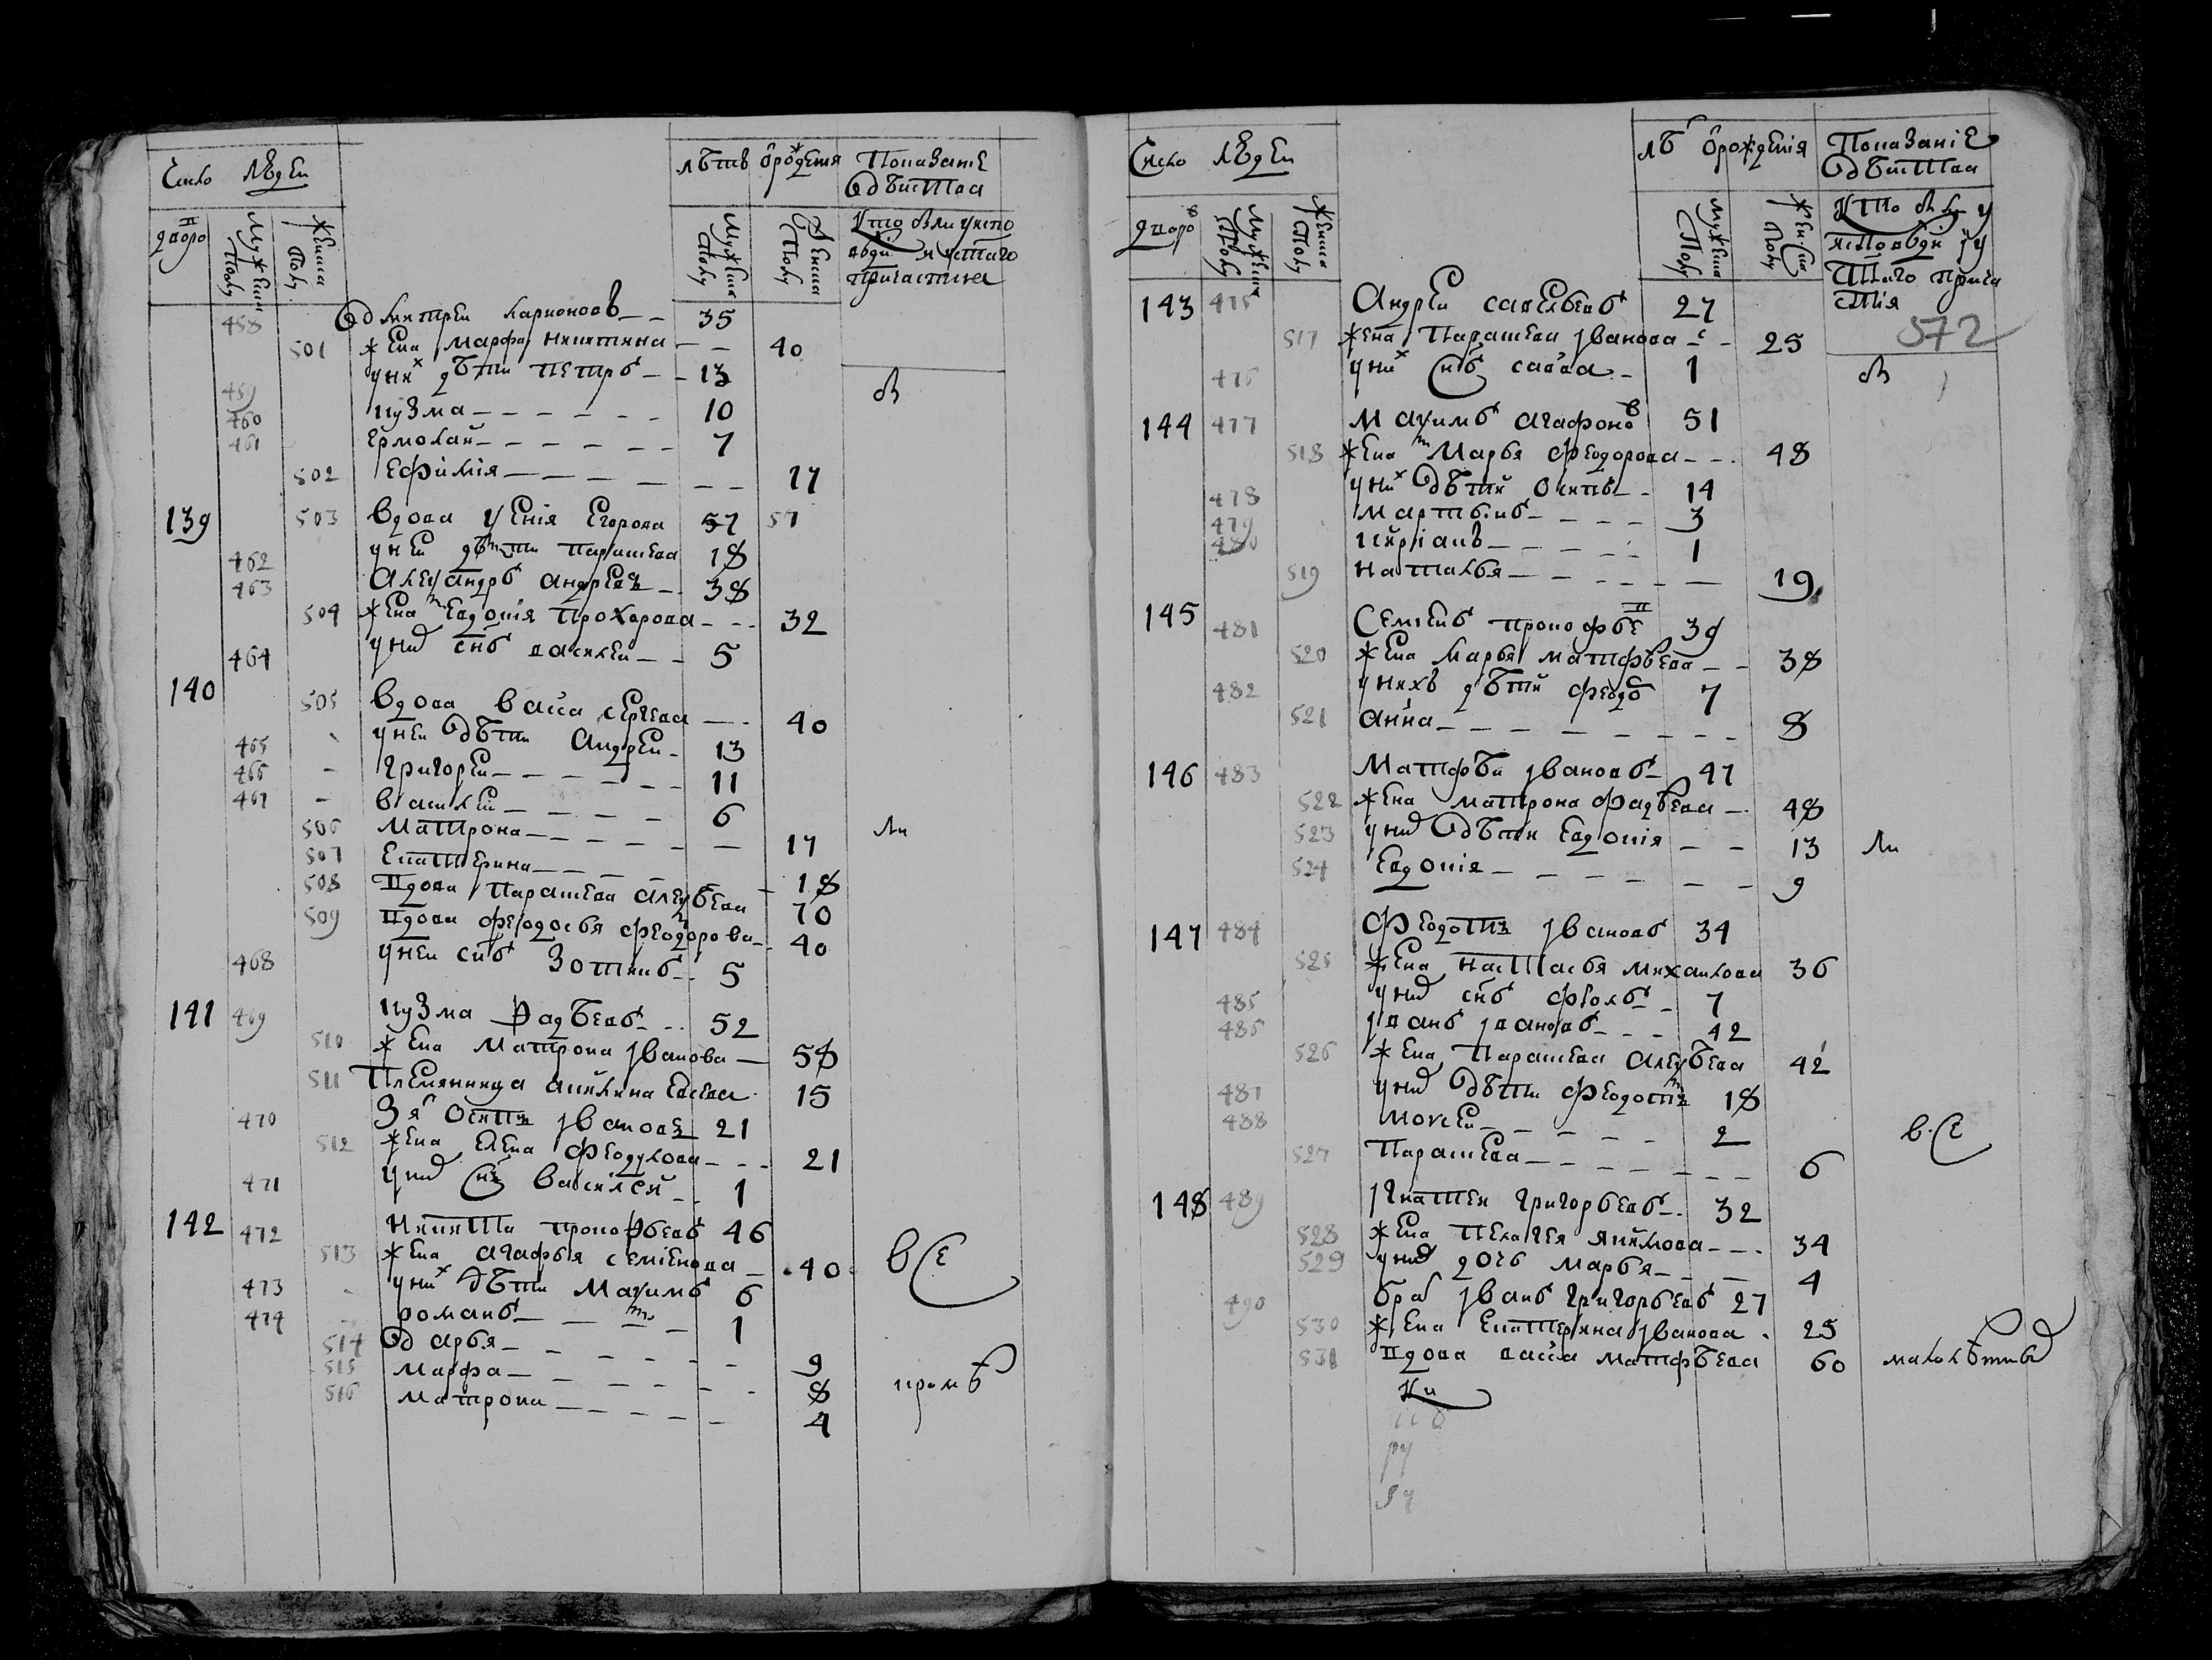 Число людей
лѣтъ
ѿ рожденія
Показаніе
ѿ бытїа
дворо в
Мужеска
Полу
женска
Полу
Мужеска
Полу
женска
Полу
458 Дмитреи Ларионовъ 35
501 жена Марфа никитина 40
459 у них дѣти петръ 13
460 кузма 10
461 ермолаи 7
502 Ефимія 17
139 503 вдова ѯенія Егорова 57 57
462 у неи дѣти 18
463 алеѯандръ андреевъ 38
504 жена Евдокія Прохорова 32
464 у них снъ василеи 5
140 505 вдова васа сергеева 40
465 у неи дѣти Андреи 13
466 григореи 11
467 василеи 6
506 матрона 17
507 Екатерина 18
508 вдова парасковеа алеѯѣева 70
509 вдова феодосья феодорова 40
468 у неи снъ Зотикъ 5
141 469 кузма Фадѣевъ 52
510 жена матрона іванова 58
511 Племяница акилина 15
470 Зя Осипъ івановъ 21
512 жена елена федулова 21
471 у них снъ василеи 1
142 472 никита прокофьевъ 46
513 жена агафья семіонова 40
473 у них дѣти Маѯимъ 6
474 романъ 1
514 дарья 9
515 марфа 8
516 матрона 4
в
ли
все
кромѣ
Число людей
лѣ ѿ рожденія
Показаніе
ѿ бытїа
дворо в
Мужеска
Полу
женска
Полу
Мужеска
Полу
женска
Полу
572
143 475 Андреи савельевъ 27
517 жена Парасковеа іванова 25
476 у них снъ савва 1
144 477 Маѯимъ агафоно в 51
518 жена Марья феодорова 48
478 у них дѣти осипъ 14
479 мартинъ 3
480 киріанъ 1
519 наталья 19
145 481 Семіонъ прокофье в 39
520 жена марья матфѣева 38
482 у нихъ дѣти феодо 7
521 анна 8
146 483 Матфѣи івановъ 47
522 жена матрона фадѣева 48
523 у них дѣти Евдокія 13
524 Евдокія 9
147 484 Феодотъ івановъ 34
525 жена настасья михаилова 36
485 у них снъ фролъ 7
486 іванъ івановъ 42
526 жена Парасковеа алеѯѣева 42
487 у них дѣти феодотъ 18
488 моисеи 2
527 Парасковеа 6
148 489 ігнатеи григорьевъ 32
528 жена Пелагея якимова 34
529 у них дочь марья 4
490 бра іванъ григорьевъ 27
530 жена Екатерина іванова 25
531 вдова васа матфѣева 60
в
ли
все
малолѣтныхъ